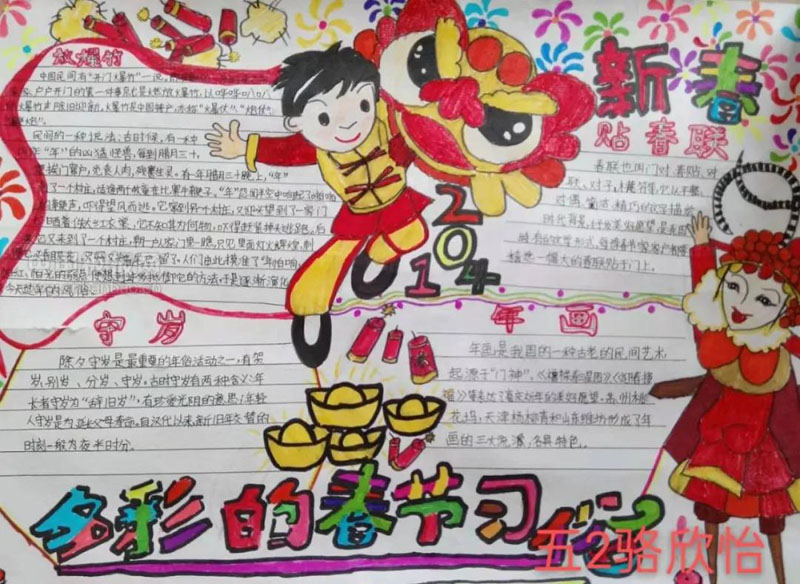 放爆竹
中国民间有"开门爆竹"一说,
户户开门的第一件事就是燃放爆竹,以哔哔叭叭
的爆竹声除旧迎新。爆竹是中国特产,亦称"爆仗"、"炮仗"、
"鞭炮"。
民间的一种说法:古时候,有一种
叫做"年"的凶猛怪兽,每到腊月三十,
挨门窜户,觅食人肉,残害生灵。有一年腊月三十晚上,"年"
到了一个村庄,适逢两个牧童在比赛牛鞭子。"年"忽闻半空中响起了
声,吓得望风而逃。它窜到另一个村庄,又
到了一个村庄,朝一户人家门里一瞧,只见里面灯火辉煌,刺
了。人们由此摸准了"年"怕响,
想到许多抵御它的方法,于是逐渐演化
今天过年的风俗
新春
贴春联
春联也叫门对、春贴、对
联、对子、桃符等,它以工整、
对偶、简洁、精巧的文字描绘
时代背景,抒发美好愿望,是我国
特有的文学形式。每逢春节,家家户户都要
精选一幅大红春联贴于门上
2014
守岁
除夕守岁是最重要的年俗活动之一,有贺
岁、别岁、分岁、守岁,古时守岁有两种含义:年
长者守岁为"辞旧岁",有珍爱光阴的意思;年轻
人守岁是为延长父母寿命。自汉代以来,新旧年交替的
时刻一般为夜半时分。
年画
年画是我国的一种古老的民间艺术,
起源于"门神"。
等表达了喜庆好年的美好愿望。苏州桃
花坞,天津杨柳青和山东潍坊形成了年
画的三大流派,各具特色。
多彩的春节习俗
五2骆欣怡